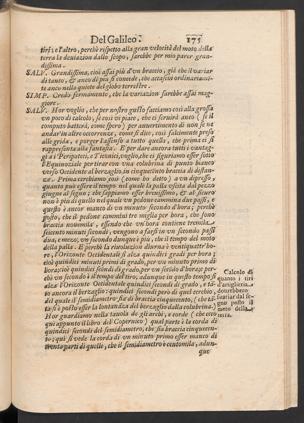 Del Galileo. 175
tiri; e l'altro, perchè rispetto alla gran velocità del moto della
terra la deviazione dallo scopo, sarebbe per mio parer gran-
dissima.
SALV. Grandissima, cioè assai più d'un braccio, già che il variar
di tanto, & anco di più si concede, che accascar ordinariamen-
te anco nella quiete del globo terrestre.
SIMP. Credo fermamente, che la variazion sarebbe assai mag-
giore.
SALV. Hor voglio, che per nostro gusto facciamo così alla grossa
un poco di calcolo, se così vi piace, che ci servirà anco (se il
computo batterà, come spero) per avvertimento di non se ne
andar in altre occorrenze, come si dice, così facilmente preso
alle grida, e porger l'assenso a tutto quello, che prima ci si
rappresenta alla fantasia. E per dare ancora tutti i vantag-
gi a' Peripatetici, e Ticonici, voglio, che ci figuriamo esser sotto
l'Equinoziale per tirar con una colubrina di punto bianco
verso Occidente al berzaglio, in cinquecento braccia di distan-
za. Prima cerchiamo così (come ho detto) a un dipresso,
quanto può essere il tempo nel quale la palla uscita dal pezzo
giugne al segno; che sappiamo esser brevissimo, e al sicuro
non è più di quello nel quale un pedone cammina due passi, e
questo è anco manco di un minuto secondo d'hora; perchè
posto, che il pedone cammini tre miglia per hora, che sono
braccia novemila, essendo che un'hora contiene tremila
seicento minuti secondi, vengono a farsi in un secondo passi
dua, e mezo; un secondo dunque è più, che il tempo del moto
della palla. E perchè la rivoluzione diurna è ventiquattr'ho-
re, l'Orizonte Occidentale si alza quindici gradi per hora;
cioè quindici minuti primi di grado, per un minuto primo di
hora; cioè quindici secondi di grado per un secondo di hora; per-
chè un secondo è il tempo del tiro, adunque in questo tempo si
alza l'Orizonte Occidentale quindici secondi di grado, e tan-
to ancora il berzaglio: quindici secondi però di quel cerchio,
del quale il semidiametro sia di braccia cinquecento,
Hor guardiamo nella tavola de gli archi, e corde (che ecco
qui appunto il libro del Copernico) qual parte è la corda di
quindici secondi del semidiametro, che sia braccia cinquecen-
to; quì si vede la corda di un minuto primo esser manco di
trenta parti di quelle, che il semidiametro è centomila, adun-
que
Calcolo di
quanto i tiri
d'artiglieria
doverebbero
svariar dal se-
gno posto il
moto della
terra.